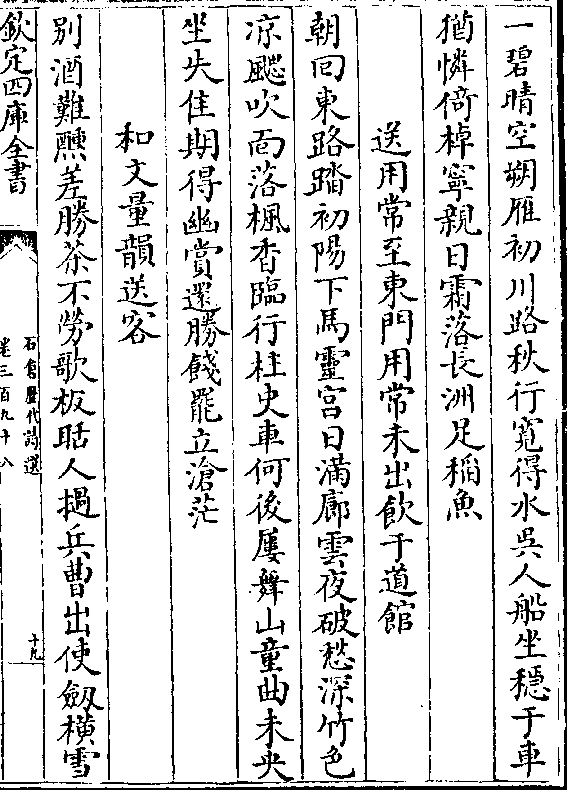 一碧晴空朔雁初川路秋行寛得水吳人船坐穩于車
猶憐倚棹寧親日霜落長洲足稻魚
送用常至東門用常未出飲于道館
朝回東路踏初陽下馬靈宮日滿廊雲夜破愁深竹色
凉颸吹面落楓香臨行柱史車何後屢舞山童曲未央
坐失佳期得幽賞還勝餞罷立滄茫
和文量韻送客
别酒難醺差勝茶不勞歌板聒人撾兵曹出使劔横雪
欽定四庫全書
石倉歷代詩選
卷三百九十八
十九